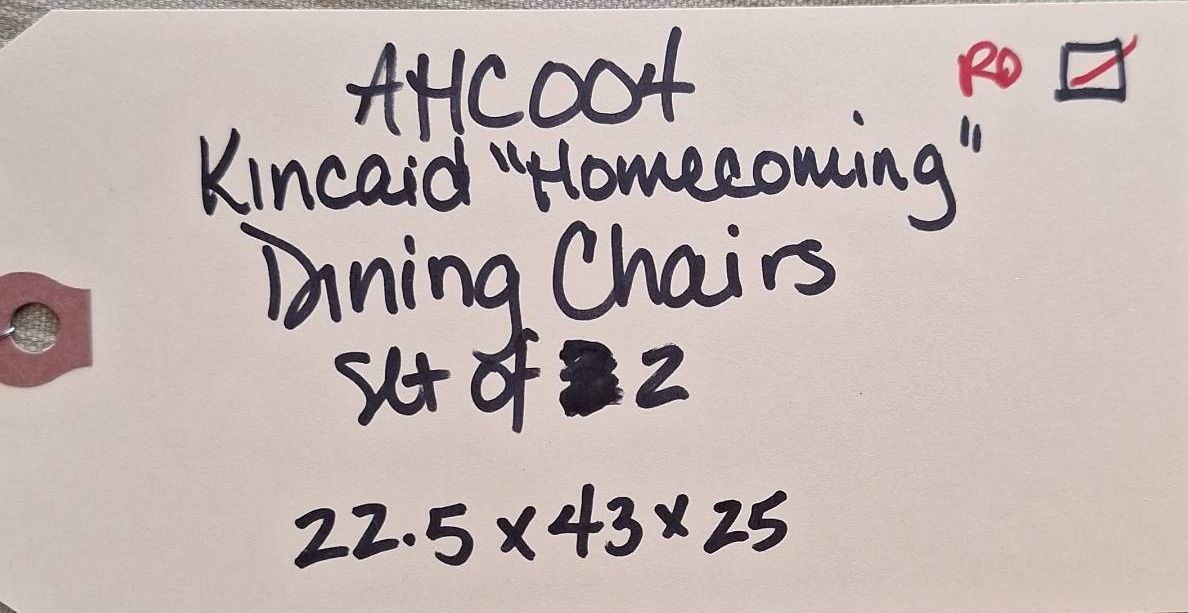 AHC004
RO
Kincaid "Homecoming"
Dining Chairs
Set of 2
22.5 x 43 x 25